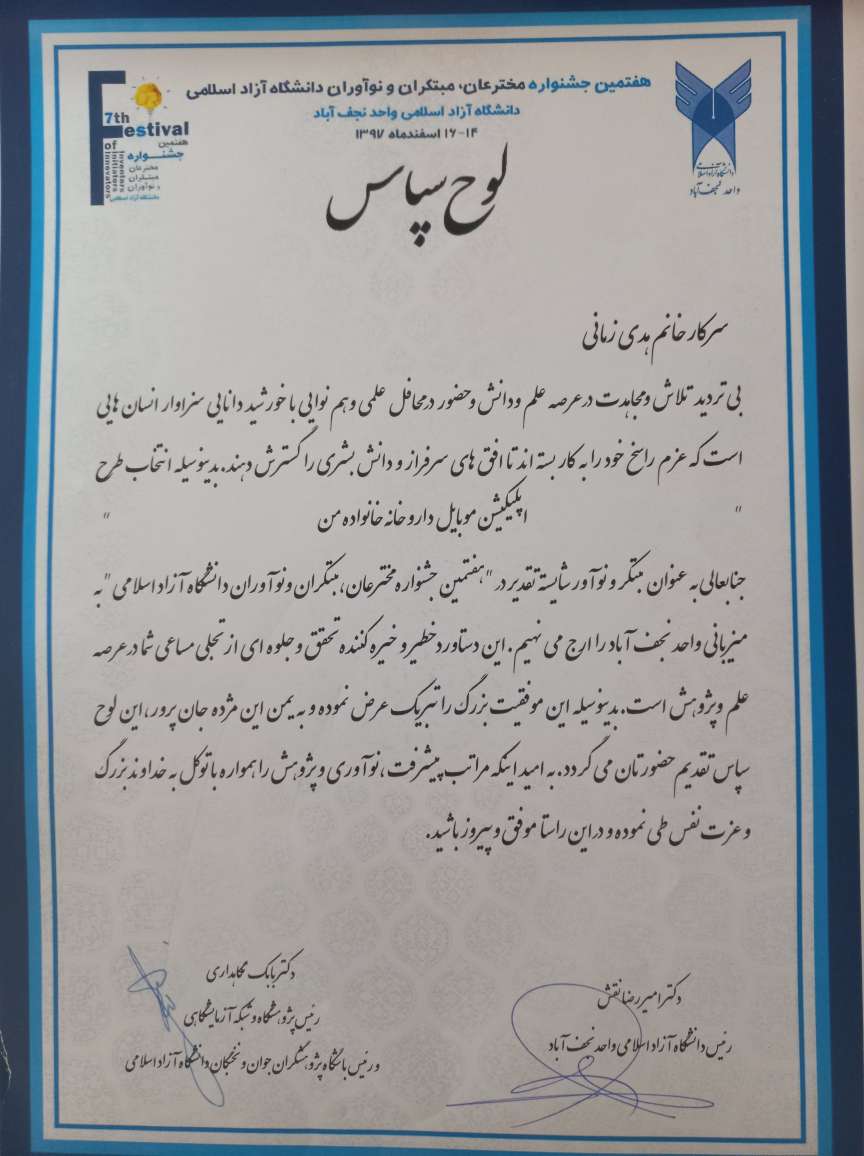 هفتمین جشنواره مخترعان، مبتکران و نوآوران دانشگاه آزاد اسلامی
دانشگاه آزاد اسلامی واحد نجف آباد
۱۴-۱۶ اسفندماه ۱۳۹۷
دانشگاه آزاد اسلامی
واحد نجف آباد
7th
Festival
of
Inventors
Initiators
Innovators
هفتمین
جشنواره
مخترعان
مبتکران
و نوآوران
دانشگاه آزاد اسلامی
لوح سپاس
سرکار خانم هدی زمانی
بی تردید تلاش و مجاهدت در عرصه علم و دانش و حضور در محافل علمی و هم نوایی با خورشید دانایی سزاوار انسان هایی
است که عزم راسخ خود را به کار بسته اند تا افق های سرفراز و دانش بشری را گسترش دهند. بدینوسیله انتخاب طرح
" اپلیکیشن موبایل داروخانه خانواده من "
جنابعالی به عنوان مبتکر و نوآور شایسته تقدیر در "هفتمین جشنواره مخترعان، مبتکران و نوآوران دانشگاه آزاد اسلامی" به
میزبانی واحد نجف آباد را ارج می نهیم. این دستاورد خطیر و خیره کننده تحقق و جلوه ای از تجلی مساعی شما در عرصه
علم و پژوهش است. بدینوسیله این موفقیت بزرگ را تبریک عرض نموده و به یمن این مژده جان پرور، این لوح
سپاس تقدیم حضورتان می گردد. به امید اینکه مراتب پیشرفت، نوآوری و پژوهش را همواره با توکل به خداوند بزرگ
و عزت نفس طی نموده و در این راستا موفق و پیروز باشید.
دکتر امیررضا نقش
رئیس دانشگاه آزاد اسلامی واحد نجف آباد
دکتر بابک نگاهداری
رئیس پژوهشگاه و شبکه آزمایشگاهی
و رئیس باشگاه پژوهشگران جوان و نخبگان دانشگاه آزاد اسلامی